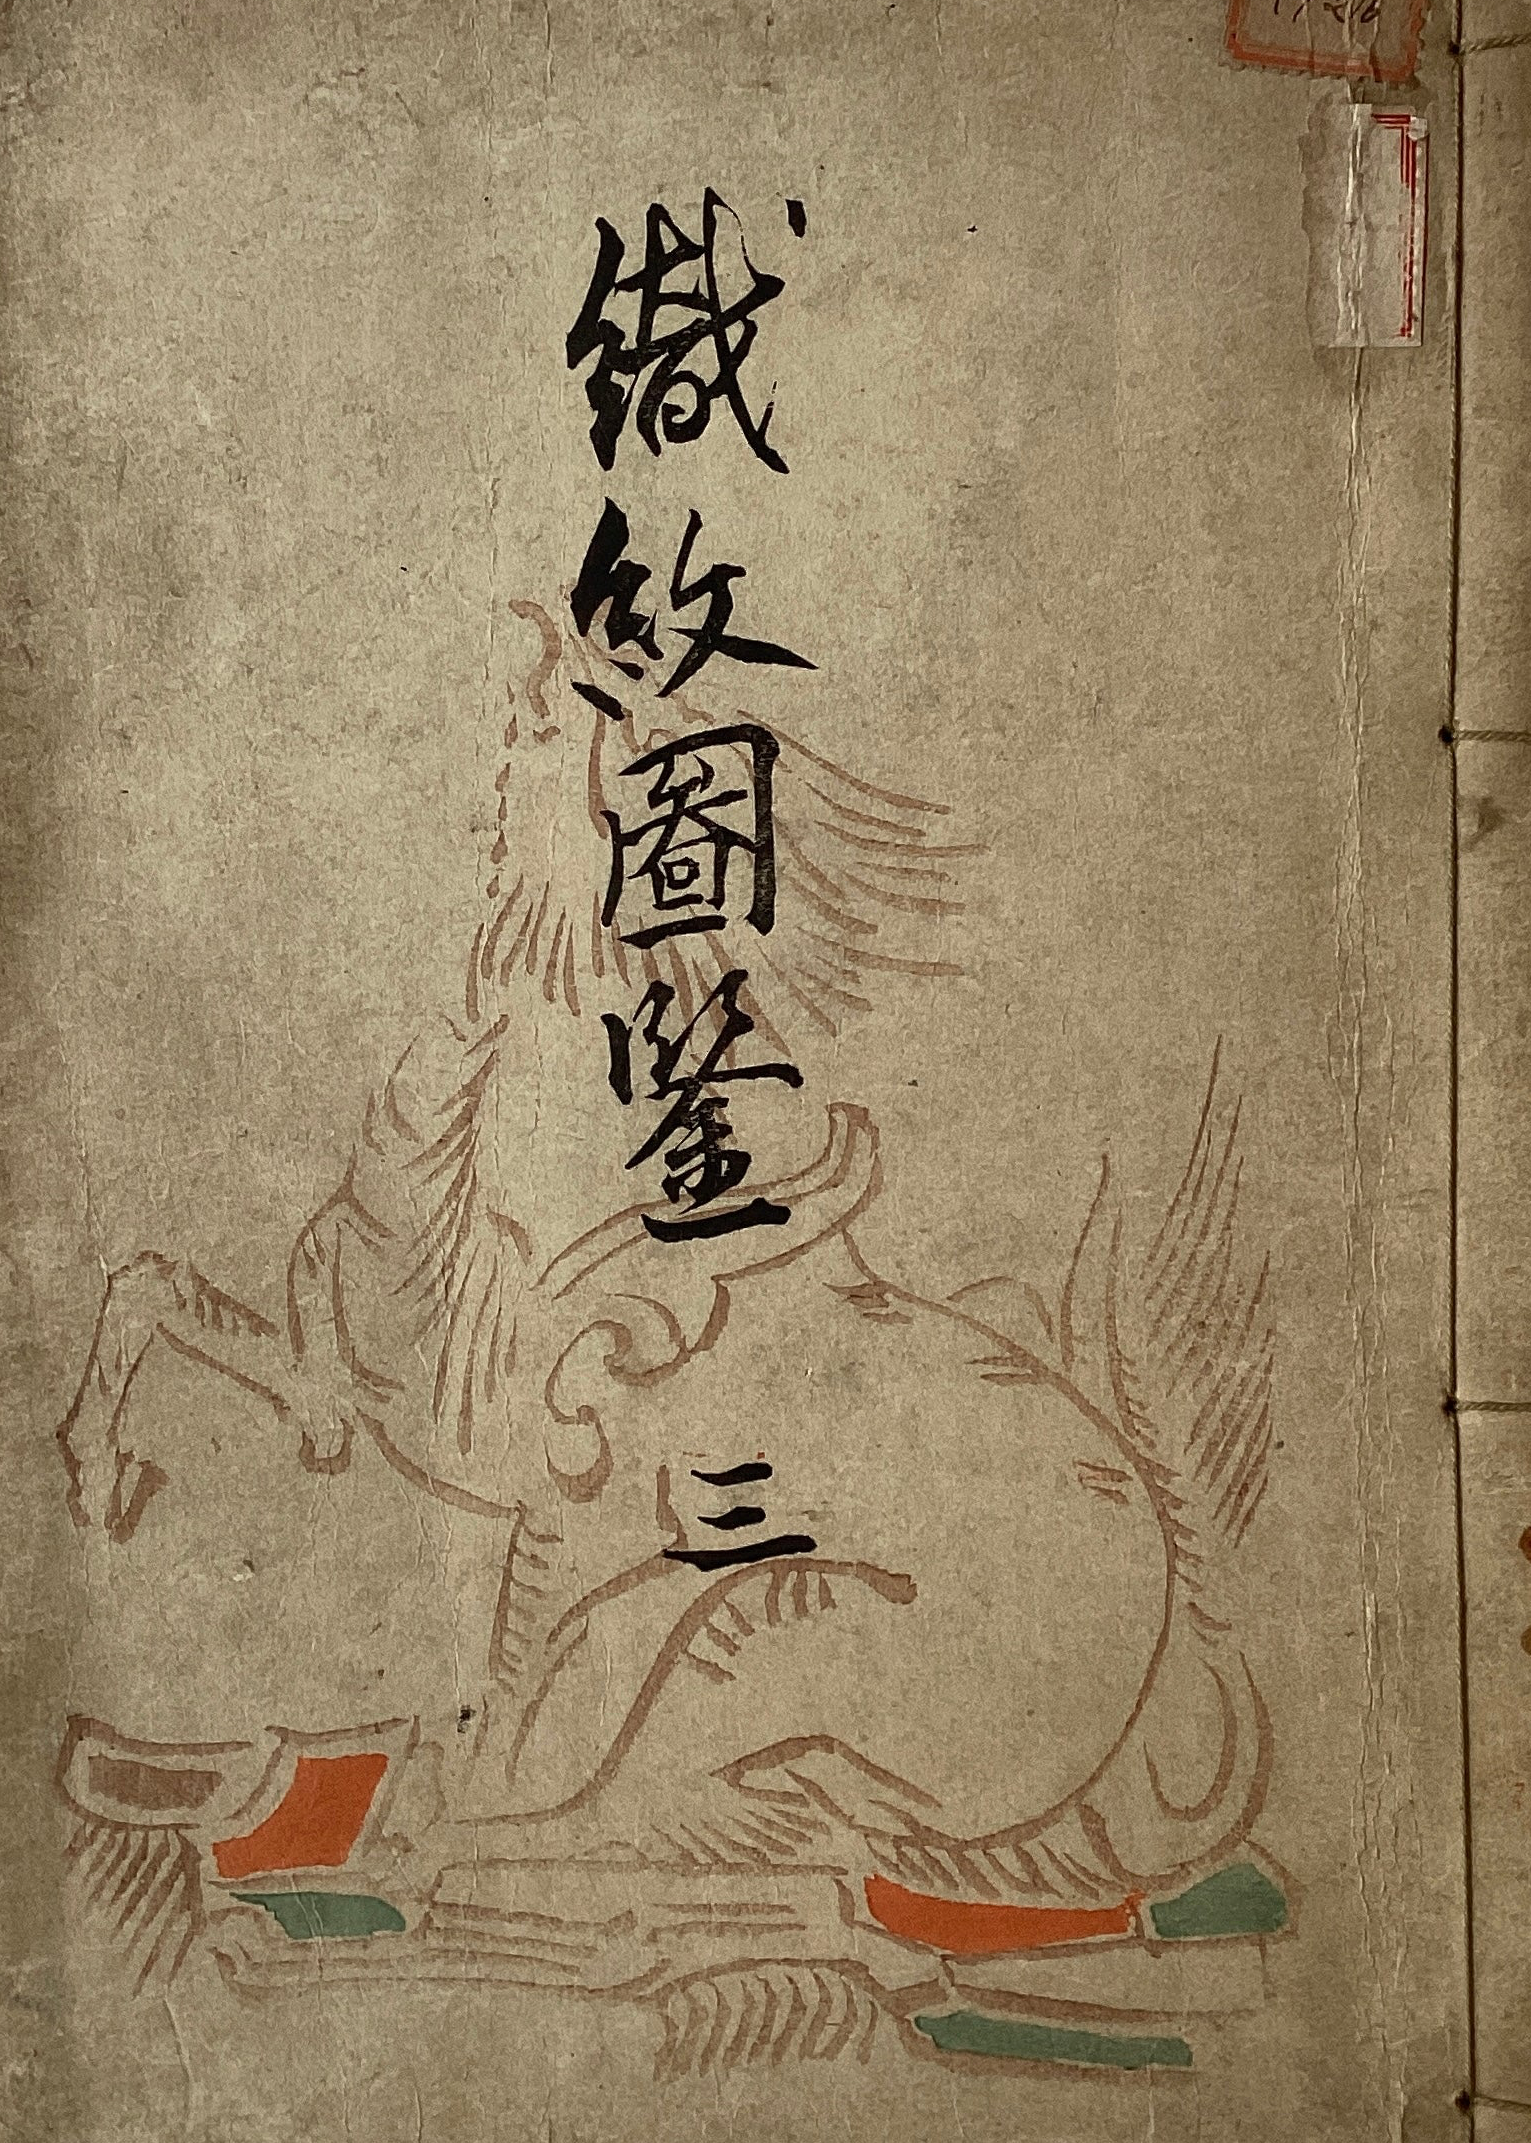 織紋圖鑒
三